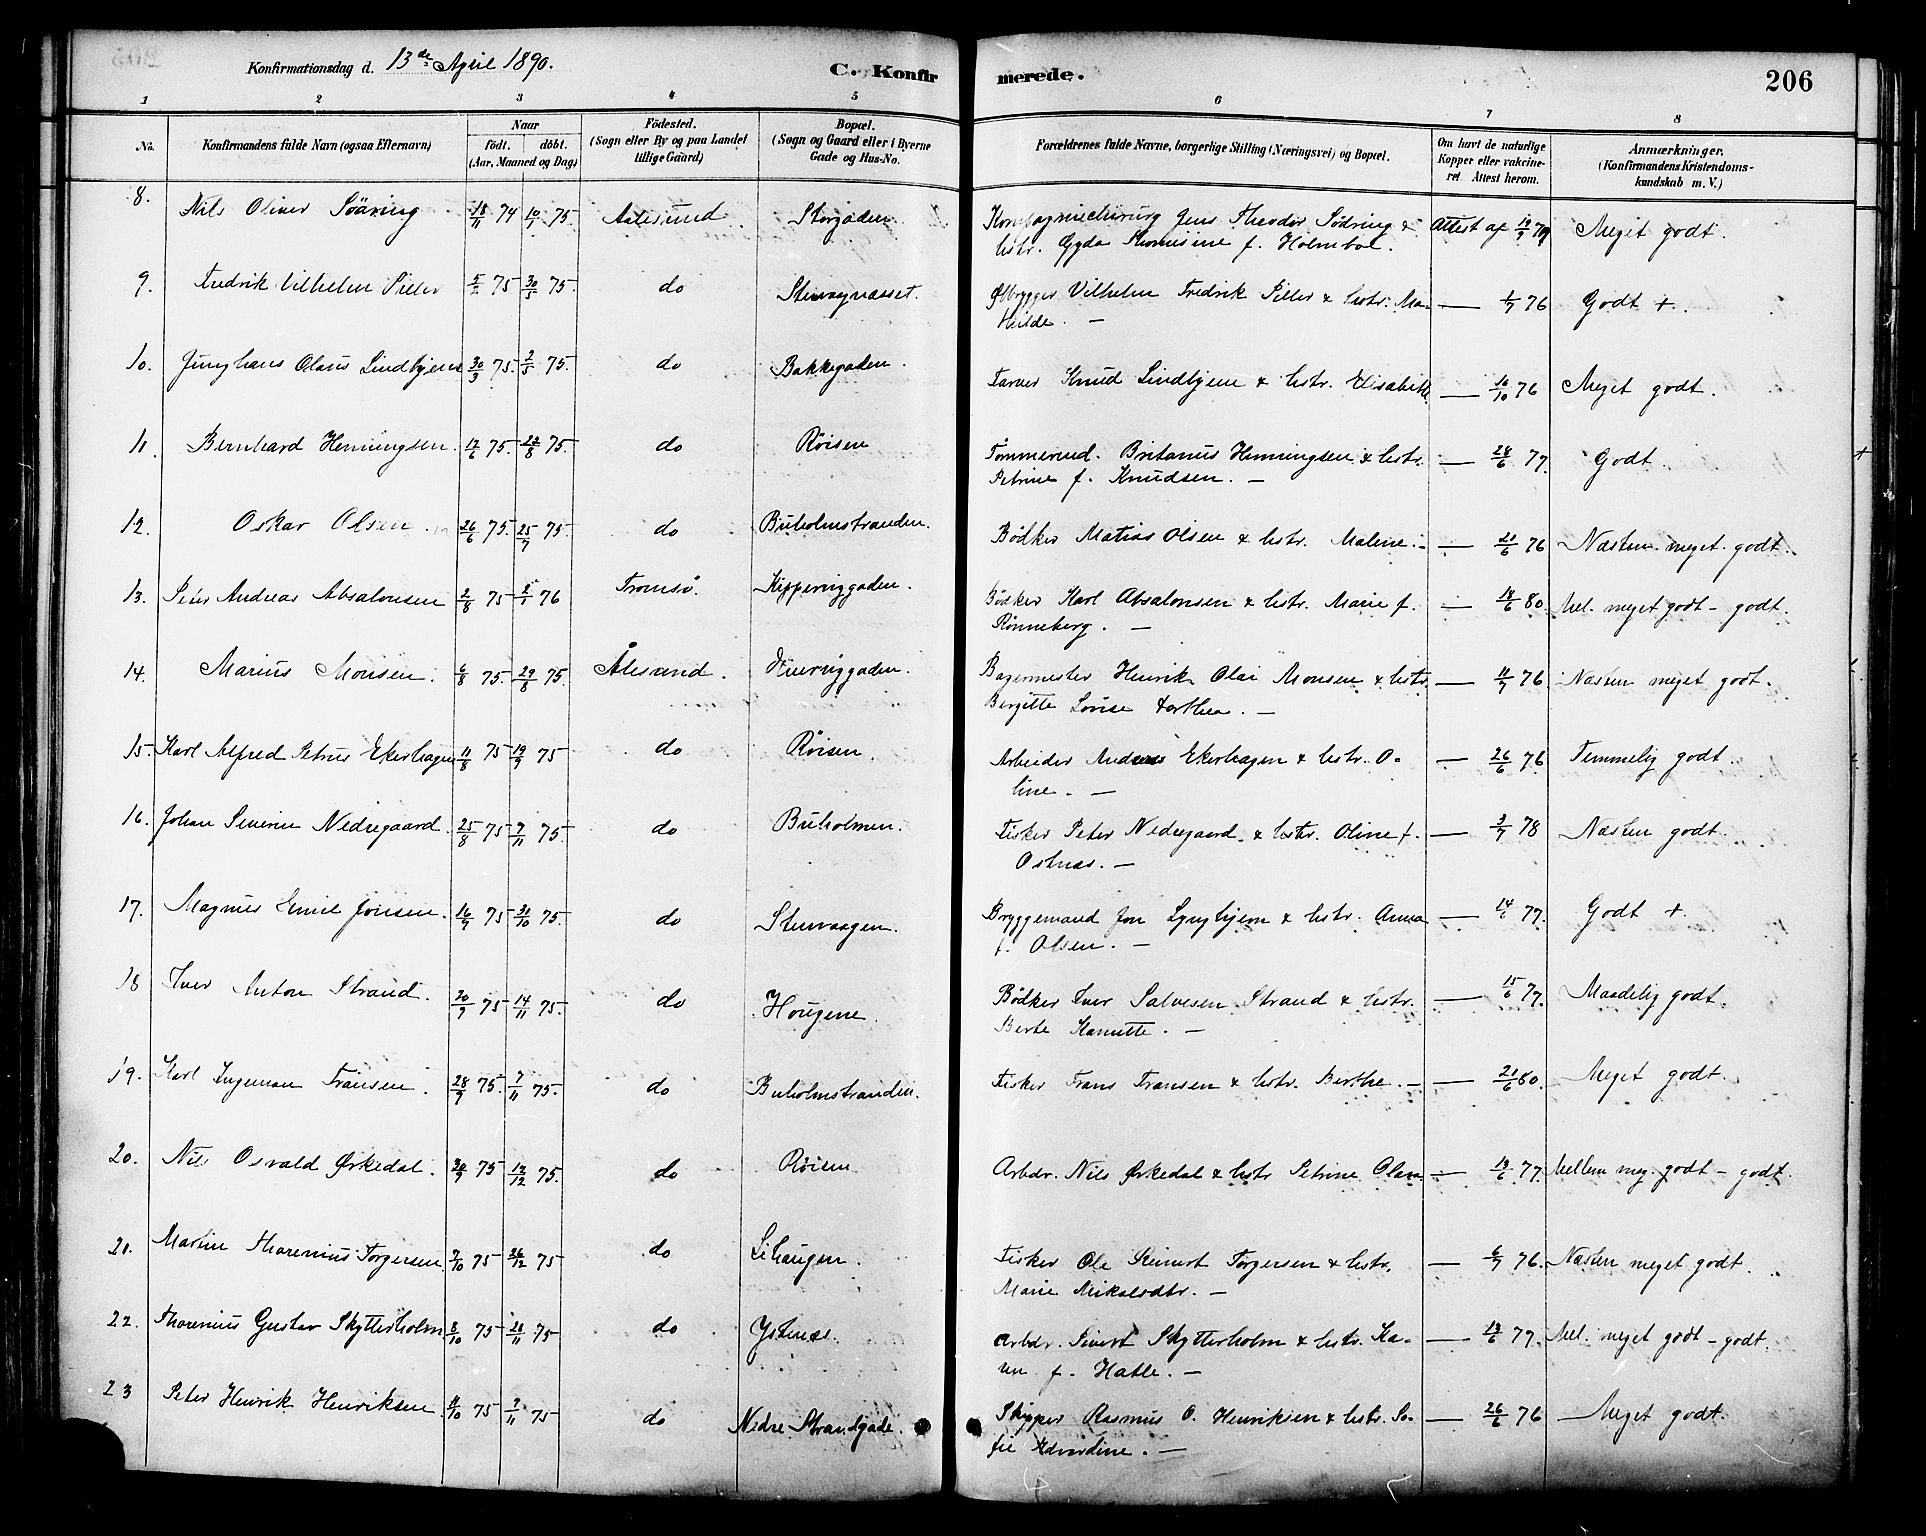 Konfirmationsdag d. 13de April 1890. C. Konfirmerede. 206
1 2 3 4 5 6 7 8
No. Konfirmandens fulde Navn (ogsaa Efternavn) Naar födt. döbt. (Aar, Maaned og Dag) Födested. (Sogn eller By og paa Landet tillige Gaard) Bopæl. (Sogn og Gaard eller i Byerne Gade og Hus-No. Forældrenes fulde Navne, borgerlige Stilling (Næringsvei) og Bopæl. Om havt de naturlige Kopper eller vakcineret Attest herom. Anmærkninger. (Konfirmandens Kristendomskundskab m. V.)
8. Nils Oliver Söäring 18/11 74 10/1 75. Aalesund Storgaden. Kompagniechirurg Jens Theodor Södring & Attest af 19/9 79 Meget godt.
hstr. Gyda Thomine f. Holmboe.
9. Fredrik Vilhelm Piller 5/2 75 30/5 75. do Stensnæsset. Ølbrygger Vilhelm Fredrik Piller & hstr. Ma- — 1/7 76 Godt +.
thilde. —
10. Junghans Olaus Lindbjerg 30/3 75. 2/5 75. do Bakkegaden. Farver Knud Lindbjerg & hstr. Elisabeth — 16/10 76 Meget godt.
11. Bernhard Henningsen. 12/6 75. 22/8 75. do Röisen Tömmermd. Britanus Henningsen & hstr. — 28/6 77. Godt.
Petrine f. Knudsen. —
12. Oskar Olsen. 26/6 75. 25/7 75. do Buholmstranden. Bödker Matias Olsen & hstr. Maline. — — 21/6 76 Næsten meget godt.
13. Peter Andreas Absalonsen 2/8 75 2/1 76 Tromsö. Kipperviggaden. Bödker Karl Absalonsen & hstr. Marie f. — 18/6 80. Mel. meget godt – godt.
Rönneberg. —
14. Marius Monsen. 6/8 75. 29/8 75. Ålesund. Kiperviggaden. Bagermester Henrik Olai Monsen & hstr. — 11/7 76 Næsten meget godt.
Bergitte Lovise Dorthea. —
15. Karl Alfred Petrus Ekerhagen 11/8 75 19/9 75 do Röisen. Arbeider Andreas Ekerhagen & hstr. O- — 26/6 76 Temmelig godt.
line. —
16. Johan Severin Nedregaard. 25/8 75 7/11 75. do Buholmen. Fisker Peter Nedregaard & hstr. Oline f. — 3/7 78 Næsten godt.
Ostnæs. —
17. Magnus Emil Jonsen. 16/9 75 31/10 75. do Stenvaagen. Bryggemand Jon Lyngbjem & hstr. Anna — 14/6 77. Godt +.
f. Olsen. —
18 Iver Anton Strand. 20/9 75 14/11 75. do Hougene. Bödker Iver Salvesen Strand & hstr. — 15/6 77. Maadelig godt.
Berte Kanutte. —
19. Karl Ingeman Fransen. 28/9 75. 7/11 75. do Buholmstranden. Fisker Frans Fransen & hstr. Berthe. — — 21/6 80. Meget godt.
20. Nils Osvald Ørkedal. 30/9 75 12/12 75. do Röisen Arbdr. Nils Ørkedal & hstr Petrine Olava — 13/6 77. Mellem meg. godt – godt.
21. Martin Thorenius Torgersen. 7/10 75 26/12 75 do Lihaugen. Fisker Ole Steinert Torgersen & hstr. — 6/7 76. Næsten meget godt.
Marie Mikalsdtr. —
22. Thorenius Gustav Skytterholm 8/10 75 28/11 75 do Ystenæs. Arbdr. Sivert Skytterholm & hstr. Ka- — 13/6 77. Mel. meget godt – godt.
ren f. Hatle. —
23 Peter Henrik Henriksen. 11/10 75 7/11 75 do Nedre Strandgade. Skipper Rasmus O. Henriksen & hstr. So- — 26/6 76 Meget godt.
fie Edvardine. —